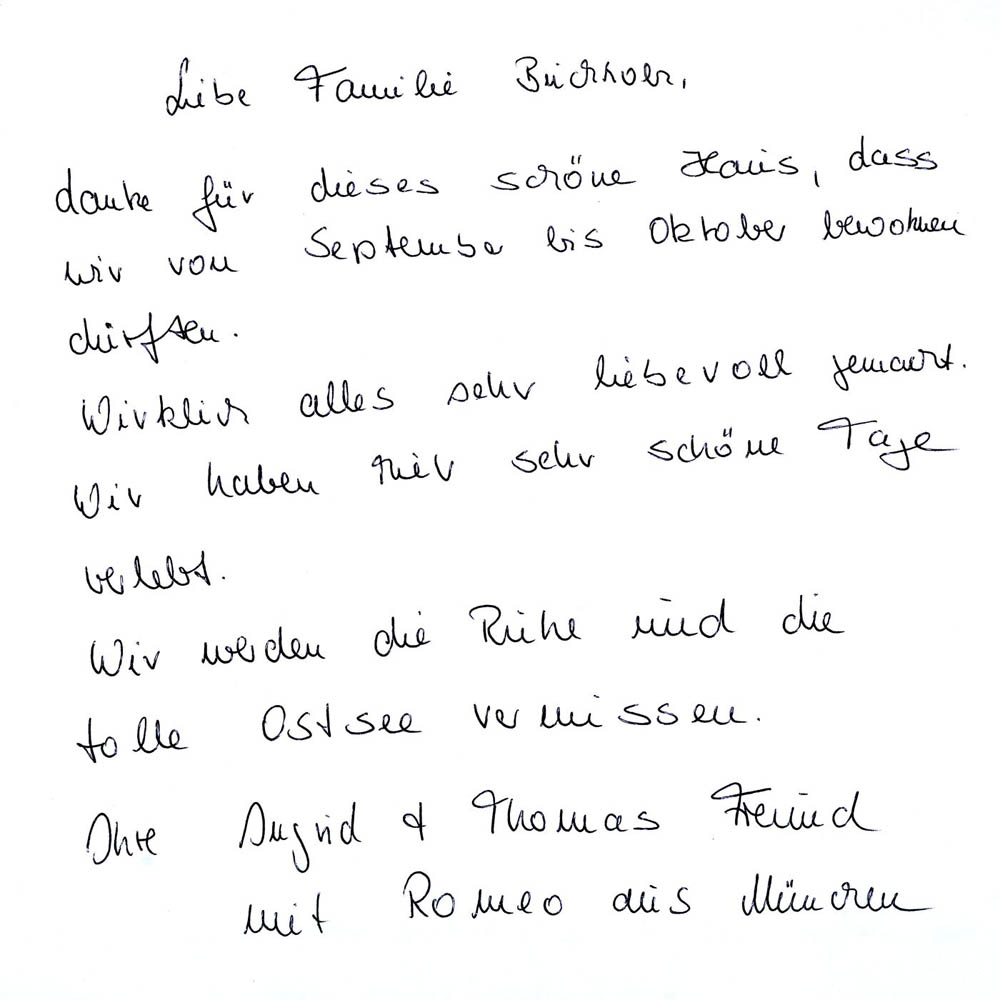 Liebe Familie Buchholz,
danke für dieses schöne Haus, dass
wir von September bis Oktober bewohnen
durften.
Wirklich alles sehr liebevoll gemacht.
Wir haben hier sehr schöne Tage
verlebt.
Wir werden die Ruhe und die
tolle Ostsee vermissen.
Ihre Ingrid & Thomas Freund
mit Romeo aus München